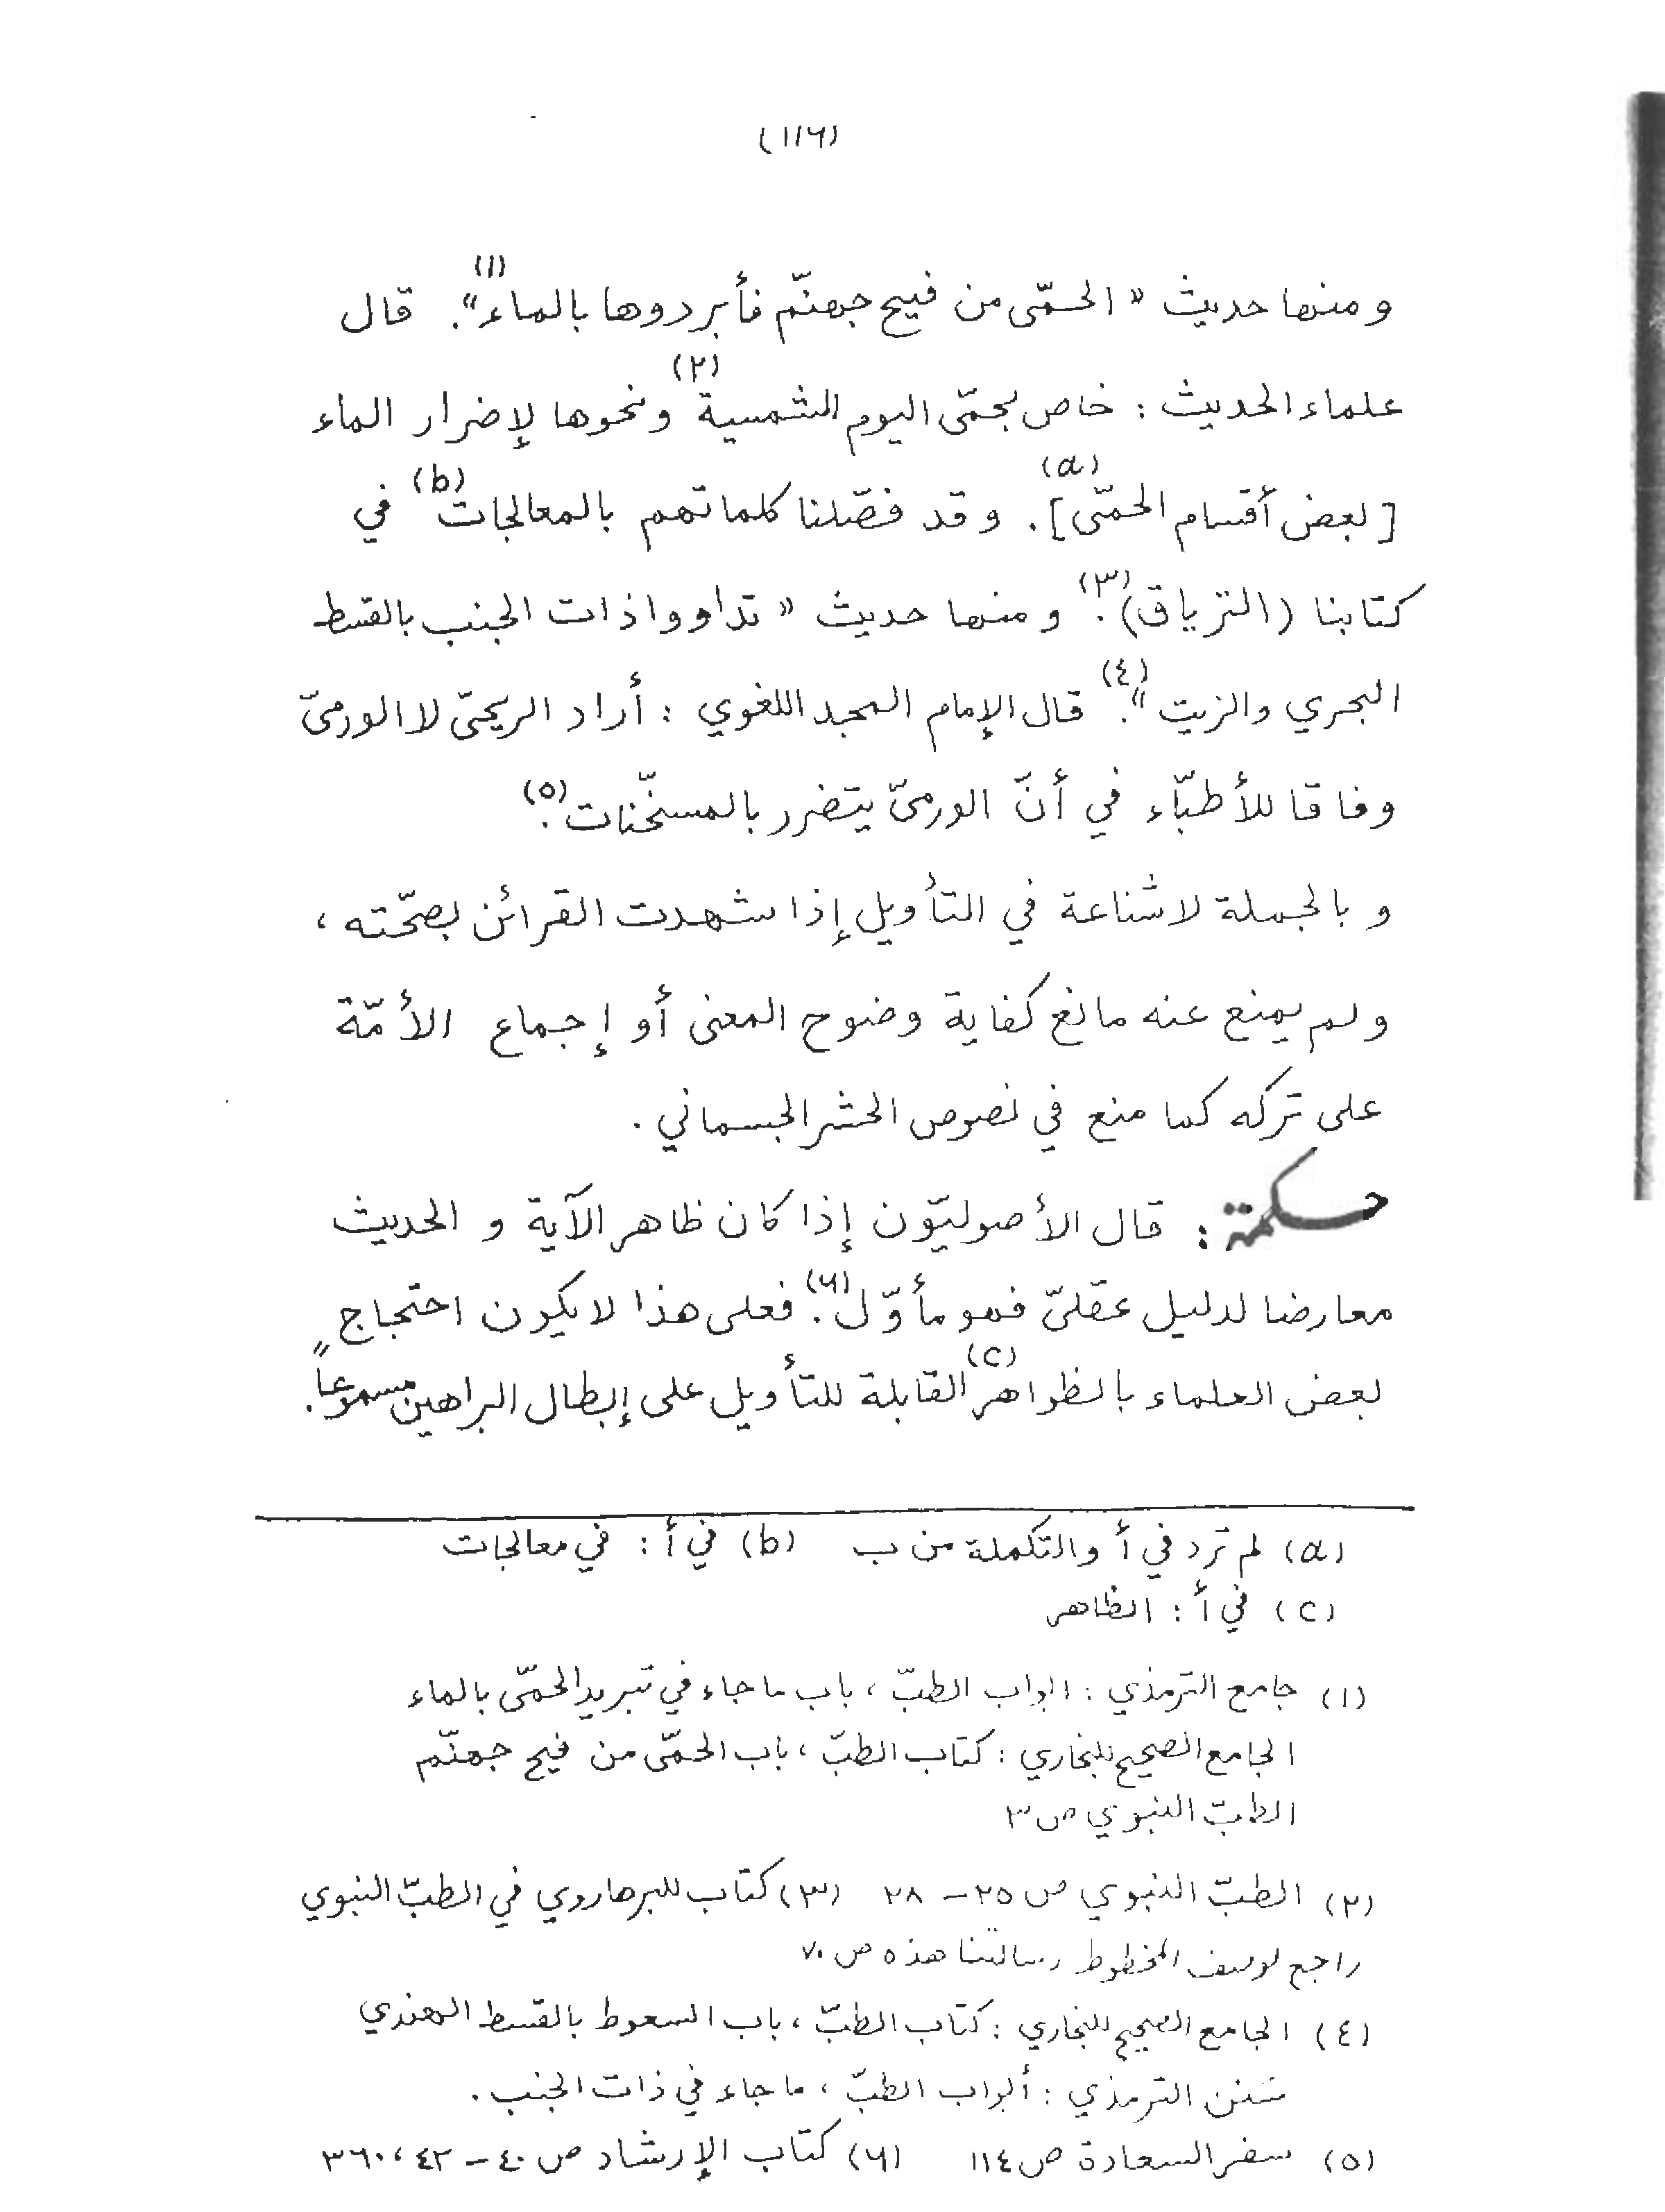 (١١٦)
ومنها حديث «الحمّى من فيح جهنّم فأبردوها بالماء»(١). قال
علماء الحديث : خاص بحمّى اليوم الشمسية(٢) ونحوها لإضرار الماء
[بعض أقسام الحمّى](a). وقد فصّلنا كلماتهم بالمعالجات(b) في
كتابنا (الترياق)(٣). ومنها حديث « تداووا ذات الجنب بالقسط
البحري والزيت »(٤). قال الإمام المجد اللغوي : أراد الريحيّ لا الورميّ
وفاقا للأطبّاء في أنّ الورميّ يتضرر بالمسخّنات(٥).
و بالجملة لا شناعة في التأويل إذا شهدت القرائن بصحّته ،
ولم يمنع عنه مانع كغاية وضوح المعنى أو إجماع الأمّة
على تركه كما منع في نصوص الحشر الجسماني .
حكمة : قال الأصوليّون إذا كان ظاهر الآية و الحديث
معارضا لدليل عقليّ فهو مأوّل(٦). فعلى هذا لا يكون احتجاج
بعض العلماء بالظواهر(c) القابلة للتأويل على إبطال البراهين مسموعاً.
(a) لم ترد في أ والتكملة من ب (b) في أ : في معالجات
(c) في أ : الظاهر
(١) جامع الترمذي : ابواب الطبّ ، باب ما جاء في تبريد الحمّى بالماء
الجامع الصحيح للبخاري : كتاب الطبّ ، باب الحمّى من فيح جهنّم
الطبّ النبوي ص ٣
(٢) الطبّ النبوي ص ٢٥ – ٢٨ (٣) كتاب للبرهاروي في الطبّ النبوي
راجع لوصف المخطوط رسالتنا هذه ص ٧٠
(٤) الجامع الصحيح للبخاري : كتاب الطبّ ، باب السعوط بالقسط الهندي
سنن الترمذي : أبواب الطبّ ، ما جاء في ذات الجنب .
(٥) سفر السعادة ص ١١٤ (٦) كتاب الإرشاد ص ٤٠ – ٤٢ ، ٣٦٠